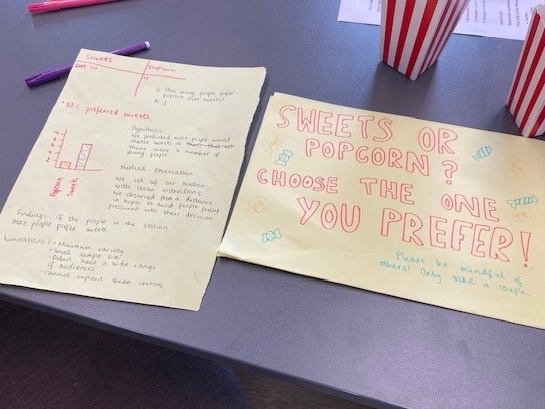 Sweets
Popcorn
Q. How many people prefer
popcorn over sweets?
A. 2
80% preferred sweets
Hypothesis:
We predicted most people would
choose sweets as
there were a number of
young people
Method: Observation
We set up our station
with clear instructions.
We observed from a distance
in hopes to avoid people feeling
pressured into their decision
popcorn
sweets
Findings: Of the people in the session
more people prefer sweets
Limitations: - Minimum variety
- Small sample size
- Didn't have a wide range
of audiences
- cannot explain these reasons
SWEETS OR
POPCORN?
CHOOSE THE ONE
YOU PREFER!
Please be mindful of
others! Only take a couple